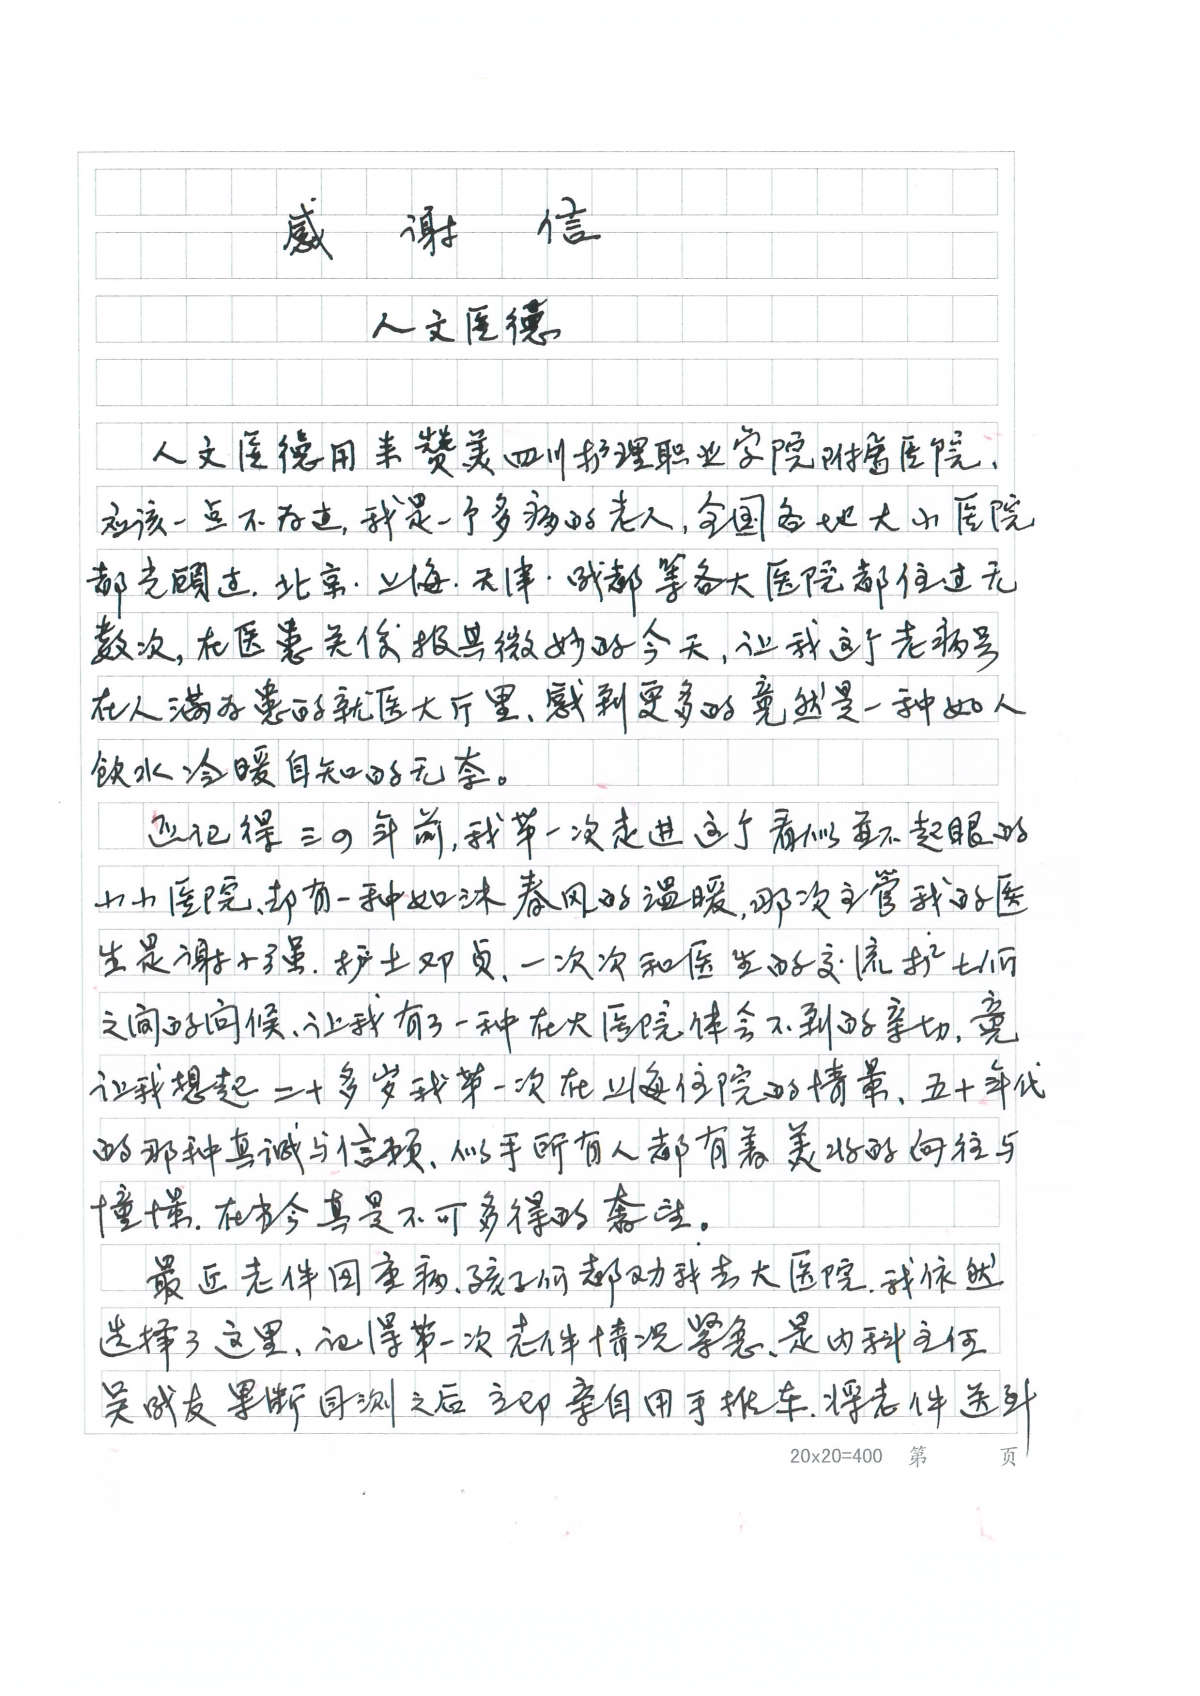 感谢信
人文医德
人文医德用来赞美四川护理职业学院附属医院、
应该一点不为过,我是一个多病的老人,全国各地大小医院
都光顾过.北京·上海·天津·成都等各大医院都住过无
数次,在医患关係报其微妙的今天,让我这个老病号
在人满为患的就医大厅里、感到更多的竟然是一种如人
饮水冷暖自知的无奈。
还记得三四年前,我第一次走进这个看似并不起眼的
小小医院、却有一种如沐春风的温暖,那次主管我的医
生是谢小强.护士邓贞、一次次和医生的交流护士们
之间的问候、让我有了一种在大医院体会不到的亲切,竟
让我想起二十多岁我第一次在上海住院的情景、五十年代
的那种真诚与信赖、似乎所有人都有着美好的向往与
憧憬.在当今真是不可多得的奢望。
最近老伴因重病.孩子们都劝我去大医院.我依然
选择了这里、记得第一次老伴情况紧急、是内科主任
吴成友果断目测之后立即亲自用手推车.将老伴送到
20x20=400 第 页